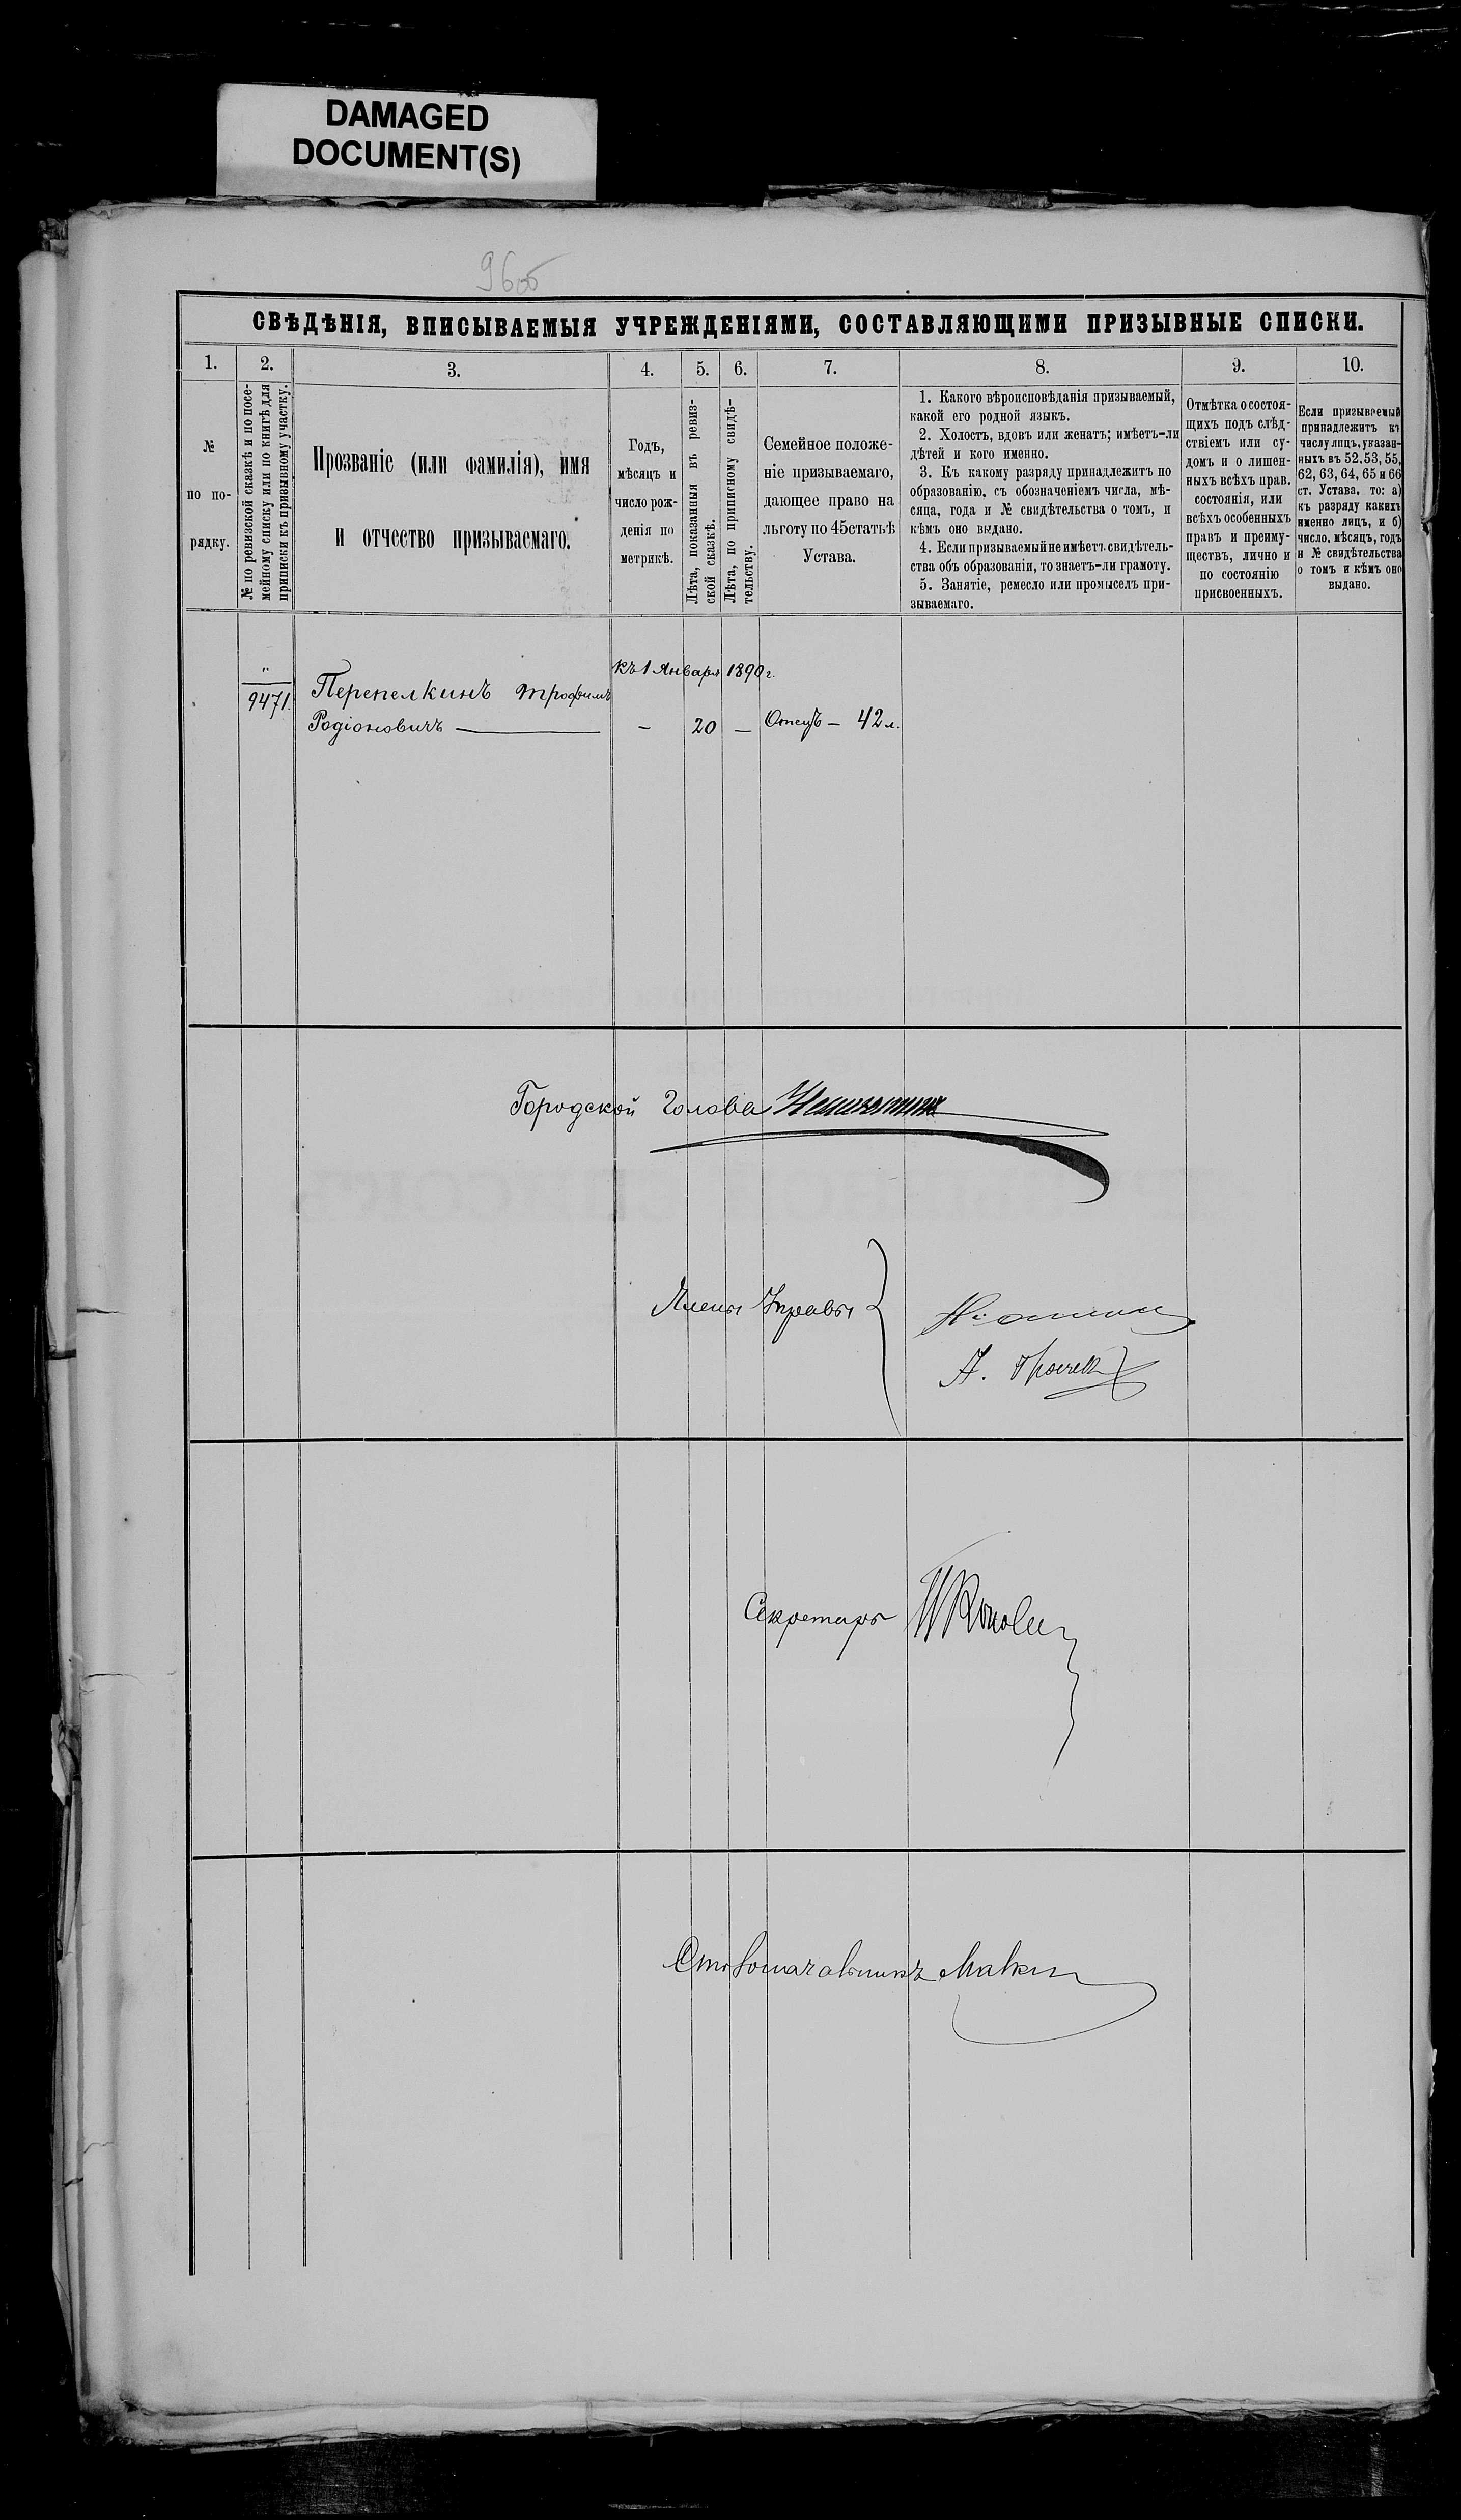 DAMAGED
DOCUMENT(S)
96об
СВѢДѢНІЯ, ВПИСЫВАЕМЫЯ УЧРЕЖДЕНІЯМИ, СОСТАВЛЯЮЩИМИ ПРИЗЫВНЫЕ СПИСКИ.
1.
2.
3.
4.
5.
6.
7.
8.
9.
10.
№
по по-
рядку.
№ по ревизской сказкѣ и по посе-
мейному списку или по книгѣ для
приписки къ призывному участку.
Прозваніе (или фамилія), имя
и отчество призываемаго.
Годъ,
мѣсяцъ и
число рож-
денія по
метрикѣ.
Лѣта, показанныя въ ревиз-
ской сказкѣ.
Лѣта, по приписному свидѣ-
тельству.
Семейное положе-
ніе призываемаго,
дающее право на
льготу по 45статьѣ
Устава.
1. Какого вѣроисповѣданія призываемый,
какой его родной языкъ.
2. Холостъ, вдовъ или женатъ; имѣетъ-ли
дѣтей и кого именно.
3. Къ какому разряду принадлежитъ по
образованію, съ обозначеніемъ числа, мѣ-
сяца, года и № свидѣтельства о томъ, и
кѣмъ оно выдано.
4. Если призываемый не имѣетъ свидѣтель-
ства объ образованіи, то знаетъ-ли грамоту.
5. Занятіе, ремесло или промыселъ при-
зываемаго.
Отмѣтка о состоя-
щихъ подъ слѣд-
ствіемъ или су-
домъ и о лишен-
ныхъ всѣхъ прав.
состоянія, или
всѣхъ особенныхъ
правъ и преиму-
ществъ, лично и
по состоянію
присвоенныхъ.
Если призываемый
принадлежитъ къ
числу лицъ, указан-
ныхъ въ 52, 53, 55,
62, 63, 64, 65 и 66
ст. Устава, то: а)
къ разряду какихъ
именно лицъ, и б)
число, мѣсяцъ, годъ
и № свидѣтельства
о томъ и кѣмъ оно
выдано.
къ 1 Января 1890 г.
"
9471.
Перепелкинъ Трофимъ
Родіоновичъ — — 20 — Отецъ — 42 л.
Городской Голова
Члены Управы
Секретарь
Столоначальникъ